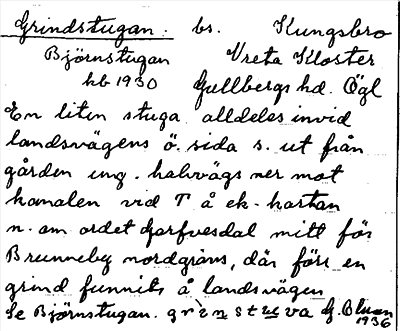 Grindstugan: bs. Kungsbro
Björnstugan Vreta Kloster
kb 1930 Gullbergs hd. Ögl
En liten stuga alldeles invid
landsvägens ö. sida s. ut från
gården ung. halvvägs ner mot
kanalen vid T å ek-kartan
n. om ordet Garfvesdal mitt för
Brunneby nordgräns, där förr en
grind funnits å landsvägen
Se Björnstugan. G.
1936